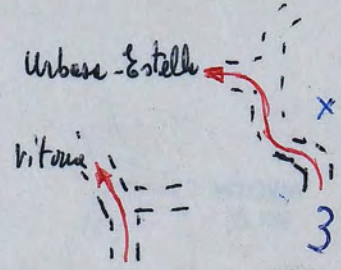 Urbasa-Estella
Vitoria
X
3